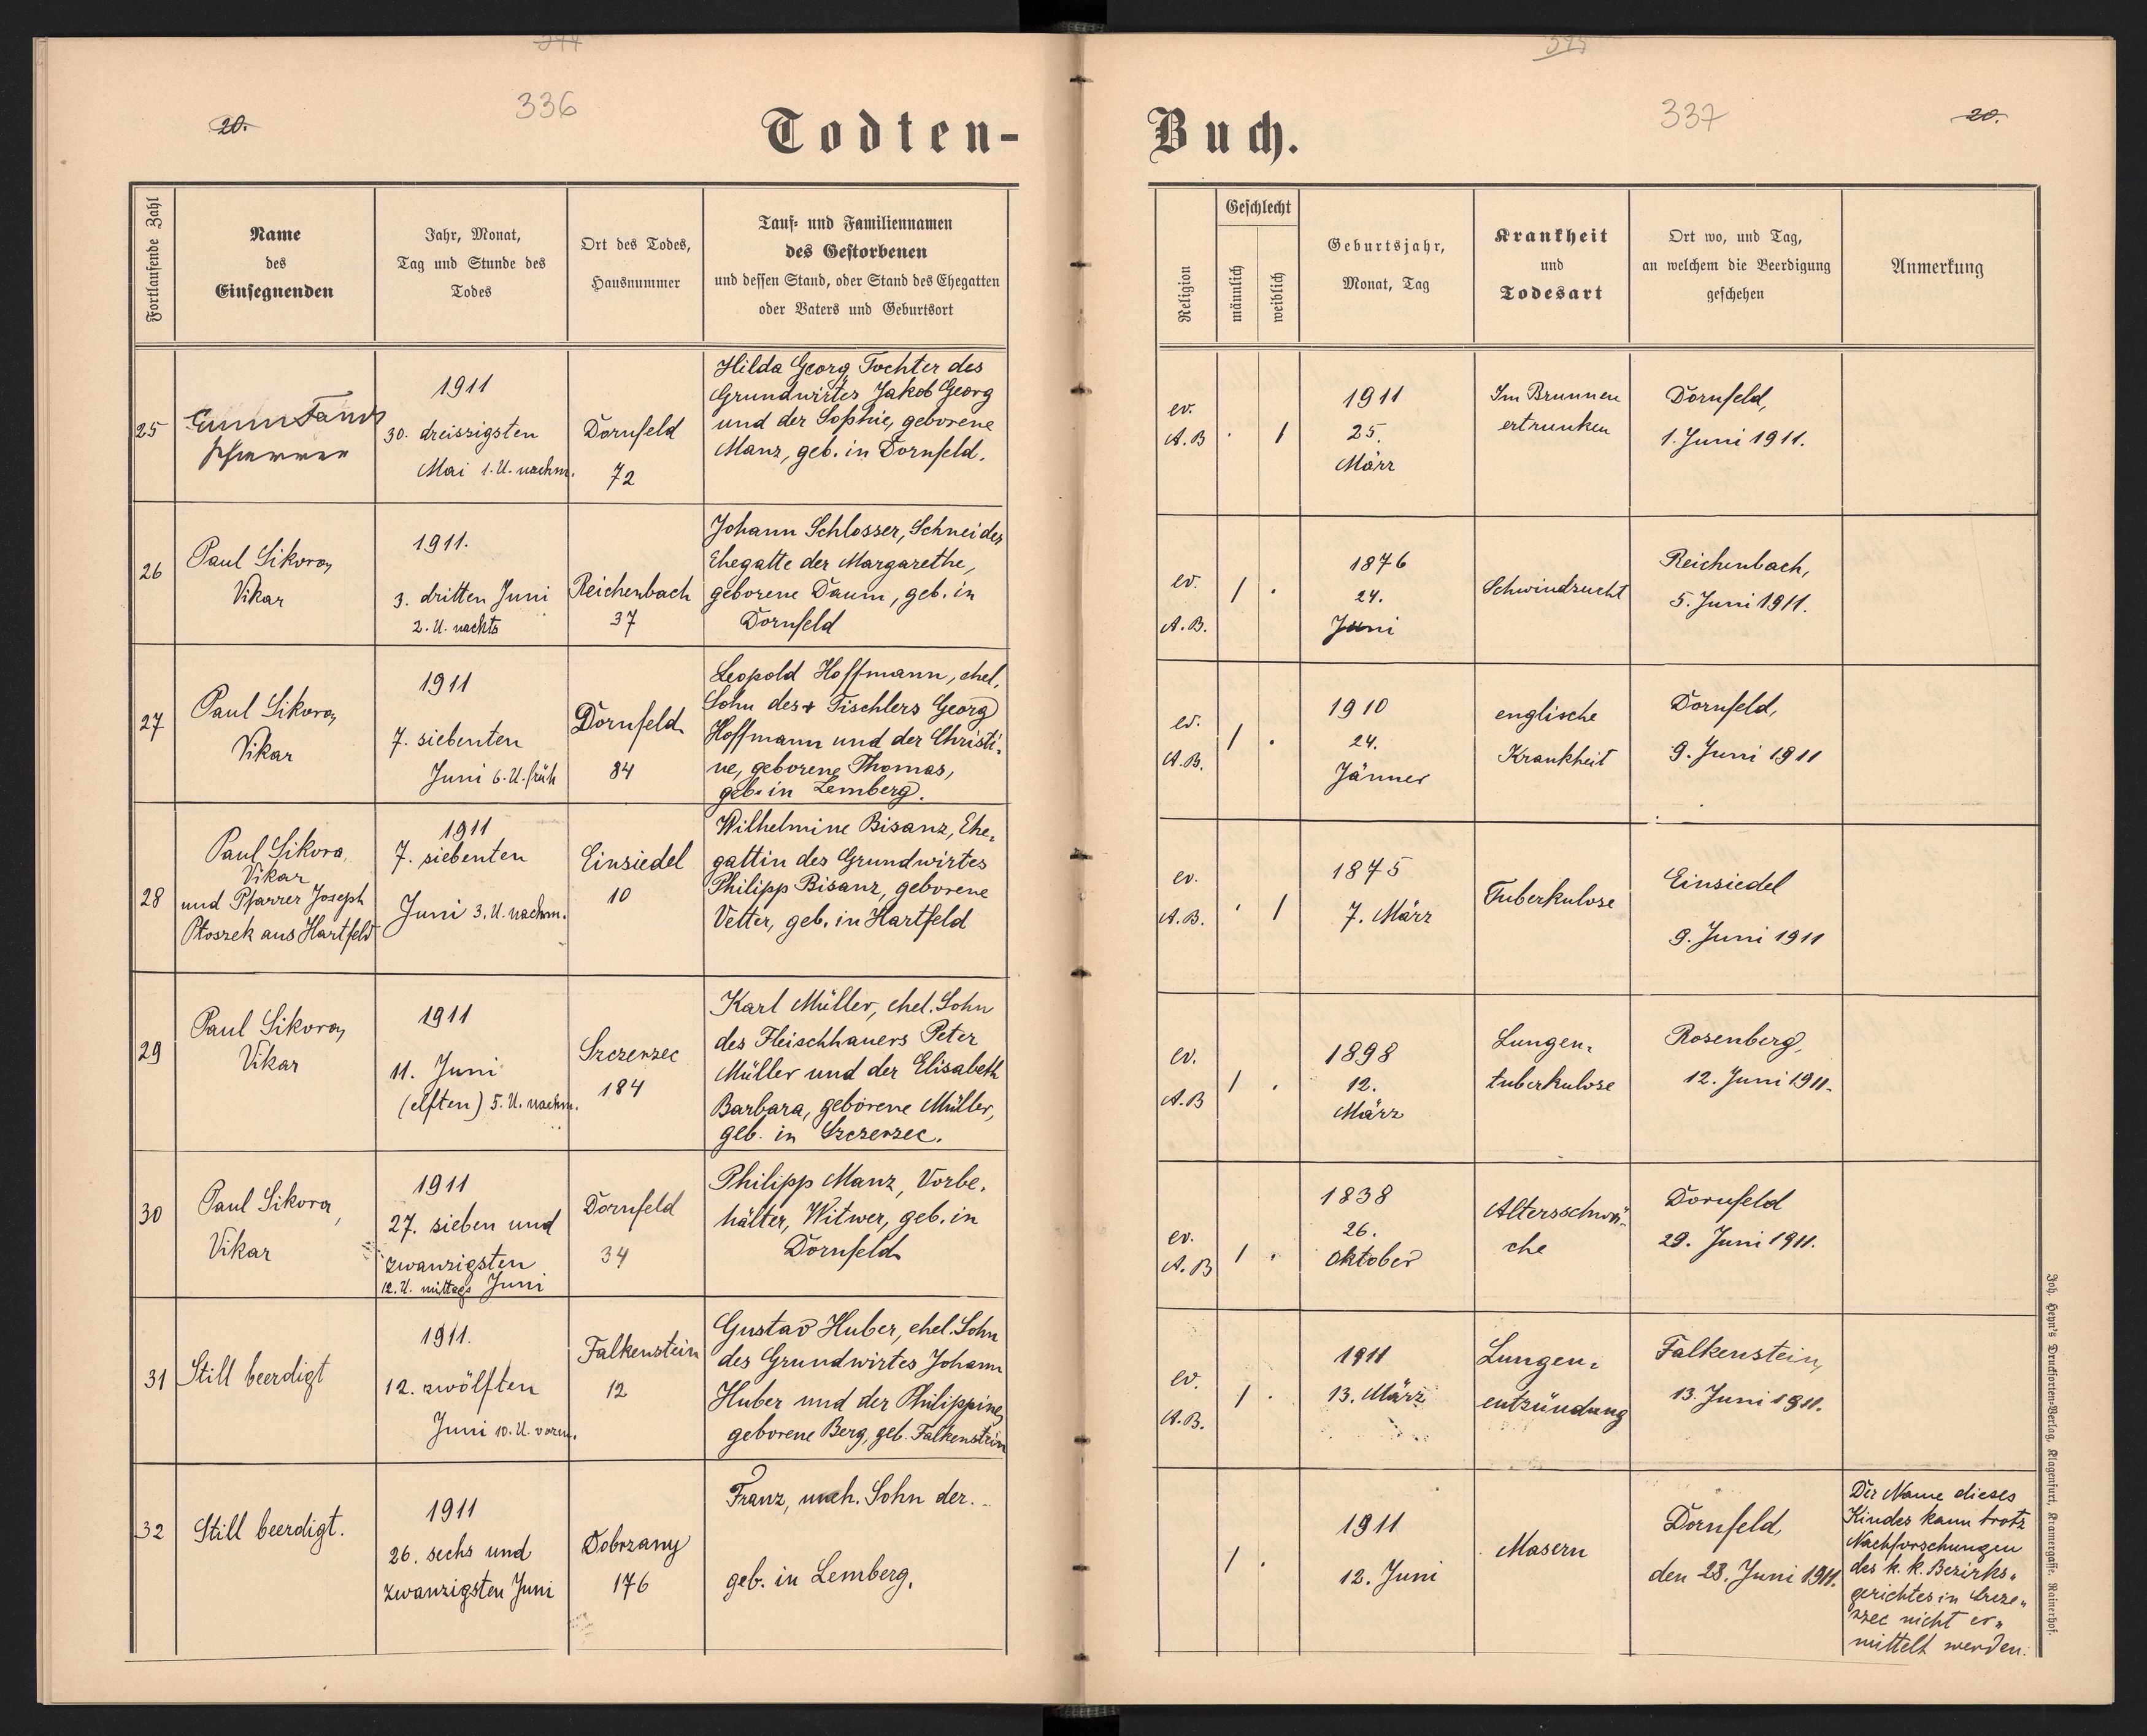 336
20.
Todten-
Fortlaufende Zahl
Name
des
Einsegnenden
Jahr, Monat,
Tag und Stunde des
Todes
Ort des Todes,
Hausnummer
Tauf- und Familiennamen
des Gestorbenen
und dessen Stand, oder Stand des Ehegatten
oder Vaters und Geburtsort
25
Pfarrer
1911
30. dreissigsten
Mai 1. U. nachm.
Dornfeld
72
Hilda Georg, Tochter des
Grundwirtes Jakob Georg
und der Sophie, geborene
Manz, geb. in Dornfeld.
26
Paul Sikora,
Vikar
1911.
3. dritten Juni
2. U. nachts
Reichenbach
37
Johann Schlosser, Schneider
Ehegatte der Margarethe,
geborene Daum, geb. in
Dornfeld
27
Paul Sikora,
Vikar
1911
7. siebenten
Juni 6. U. früh
Dornfeld
84
Leopold Hoffmann, ehel.
Sohn des + Tischlers Georg
Hoffmann und der Christi-
ne, geborene Thomas,
geb. in Lemberg.
28
Paul Sikora,
Vikar
und Pfarrer Joseph
Ploszek aus Hartfeld
1911
7. siebenten
Juni 3. U. nachm.
Einsiedel
10
Wilhelmine Bisanz, Ehe-
gattin des Grundwirtes
Philipp Bisanz, geborene
Vetter, geb. in Hartfeld
29
Paul Sikora,
Vikar
1911
11. Juni
(elften) 5. U. nachm.
Szczerzec
184
Karl Müller, ehel. Sohn
des Fleischhauers Peter
Müller und der Elisabeth
Barbara, geborene Müller,
geb. in Szczerzec.
30
Paul Sikora,
Vikar
1911
27. sieben und
zwanzigsten
12. U. mittags Juni
Dornfeld
34
Philipp Manz, Vorbe-
hälter, Witwer, geb. in
Dornfeld
31
Still beerdigt
1911.
12. zwölften
Juni 10. U. vorm.
Falkenstein
12
Gustav Huber, ehel. Sohn
des Grundwirtes Johann
Huber und der Philippine,
geborene Berg, geb. Falkenstein
32
Still beerdigt.
1911
26. sechs und
zwanzigsten Juni
Dobrzany
176
Franz, uneh. Sohn der..
geb. in Lemberg.
337
20.
Buch.
Religion
Geschlecht
männlich
weiblich
Geburtsjahr,
Monat, Tag
Krankheit
und
Todesart
Ort wo, und Tag,
an welchem die Beerdigung
geschehen
Anmerkung
ev.
A. B
. /
1911
25.
März
Im Brunnen
ertrunken
Dornfeld,
1. Juni 1911.
ev.
A. B.
/ .
1876
24.
Juni
Schwindsucht
Reichenbach,
5. Juni 1911.
ev.
A. B.
/ .
1910
24.
Jänner
englische
Krankheit
Dornfeld,
9. Juni 1911
ev.
A. B.
. /
1875
7. März
Tuberkulose
Einsiedel
9. Juni 1911
ev.
A. B
/ .
1898
12.
März
Lungen-
tuberkulose
Rosenberg,
12. Juni 1911.
ev.
A. B
/ .
1838
26.
Oktober
Altersschwä-
che
Dornfeld
29. Juni 1911.
ev.
A. B.
/ .
1911
13. März
Lungen-
entzündung
Falkenstein,
13. Juni 1911.
/ .
1911
12. Juni
Masern
Dornfeld,
den 28. Juni 1911.
Der Name dieses
Kindes kann trotz
Nachforschungen
des k. k. Bezirks-
gerichtes in Szcze-
rzec nicht er-
mittelt werden.
Joh. Heyn's Drucksorten-Verlag, Klagenfurt, Kramergasse, Rainerhof.